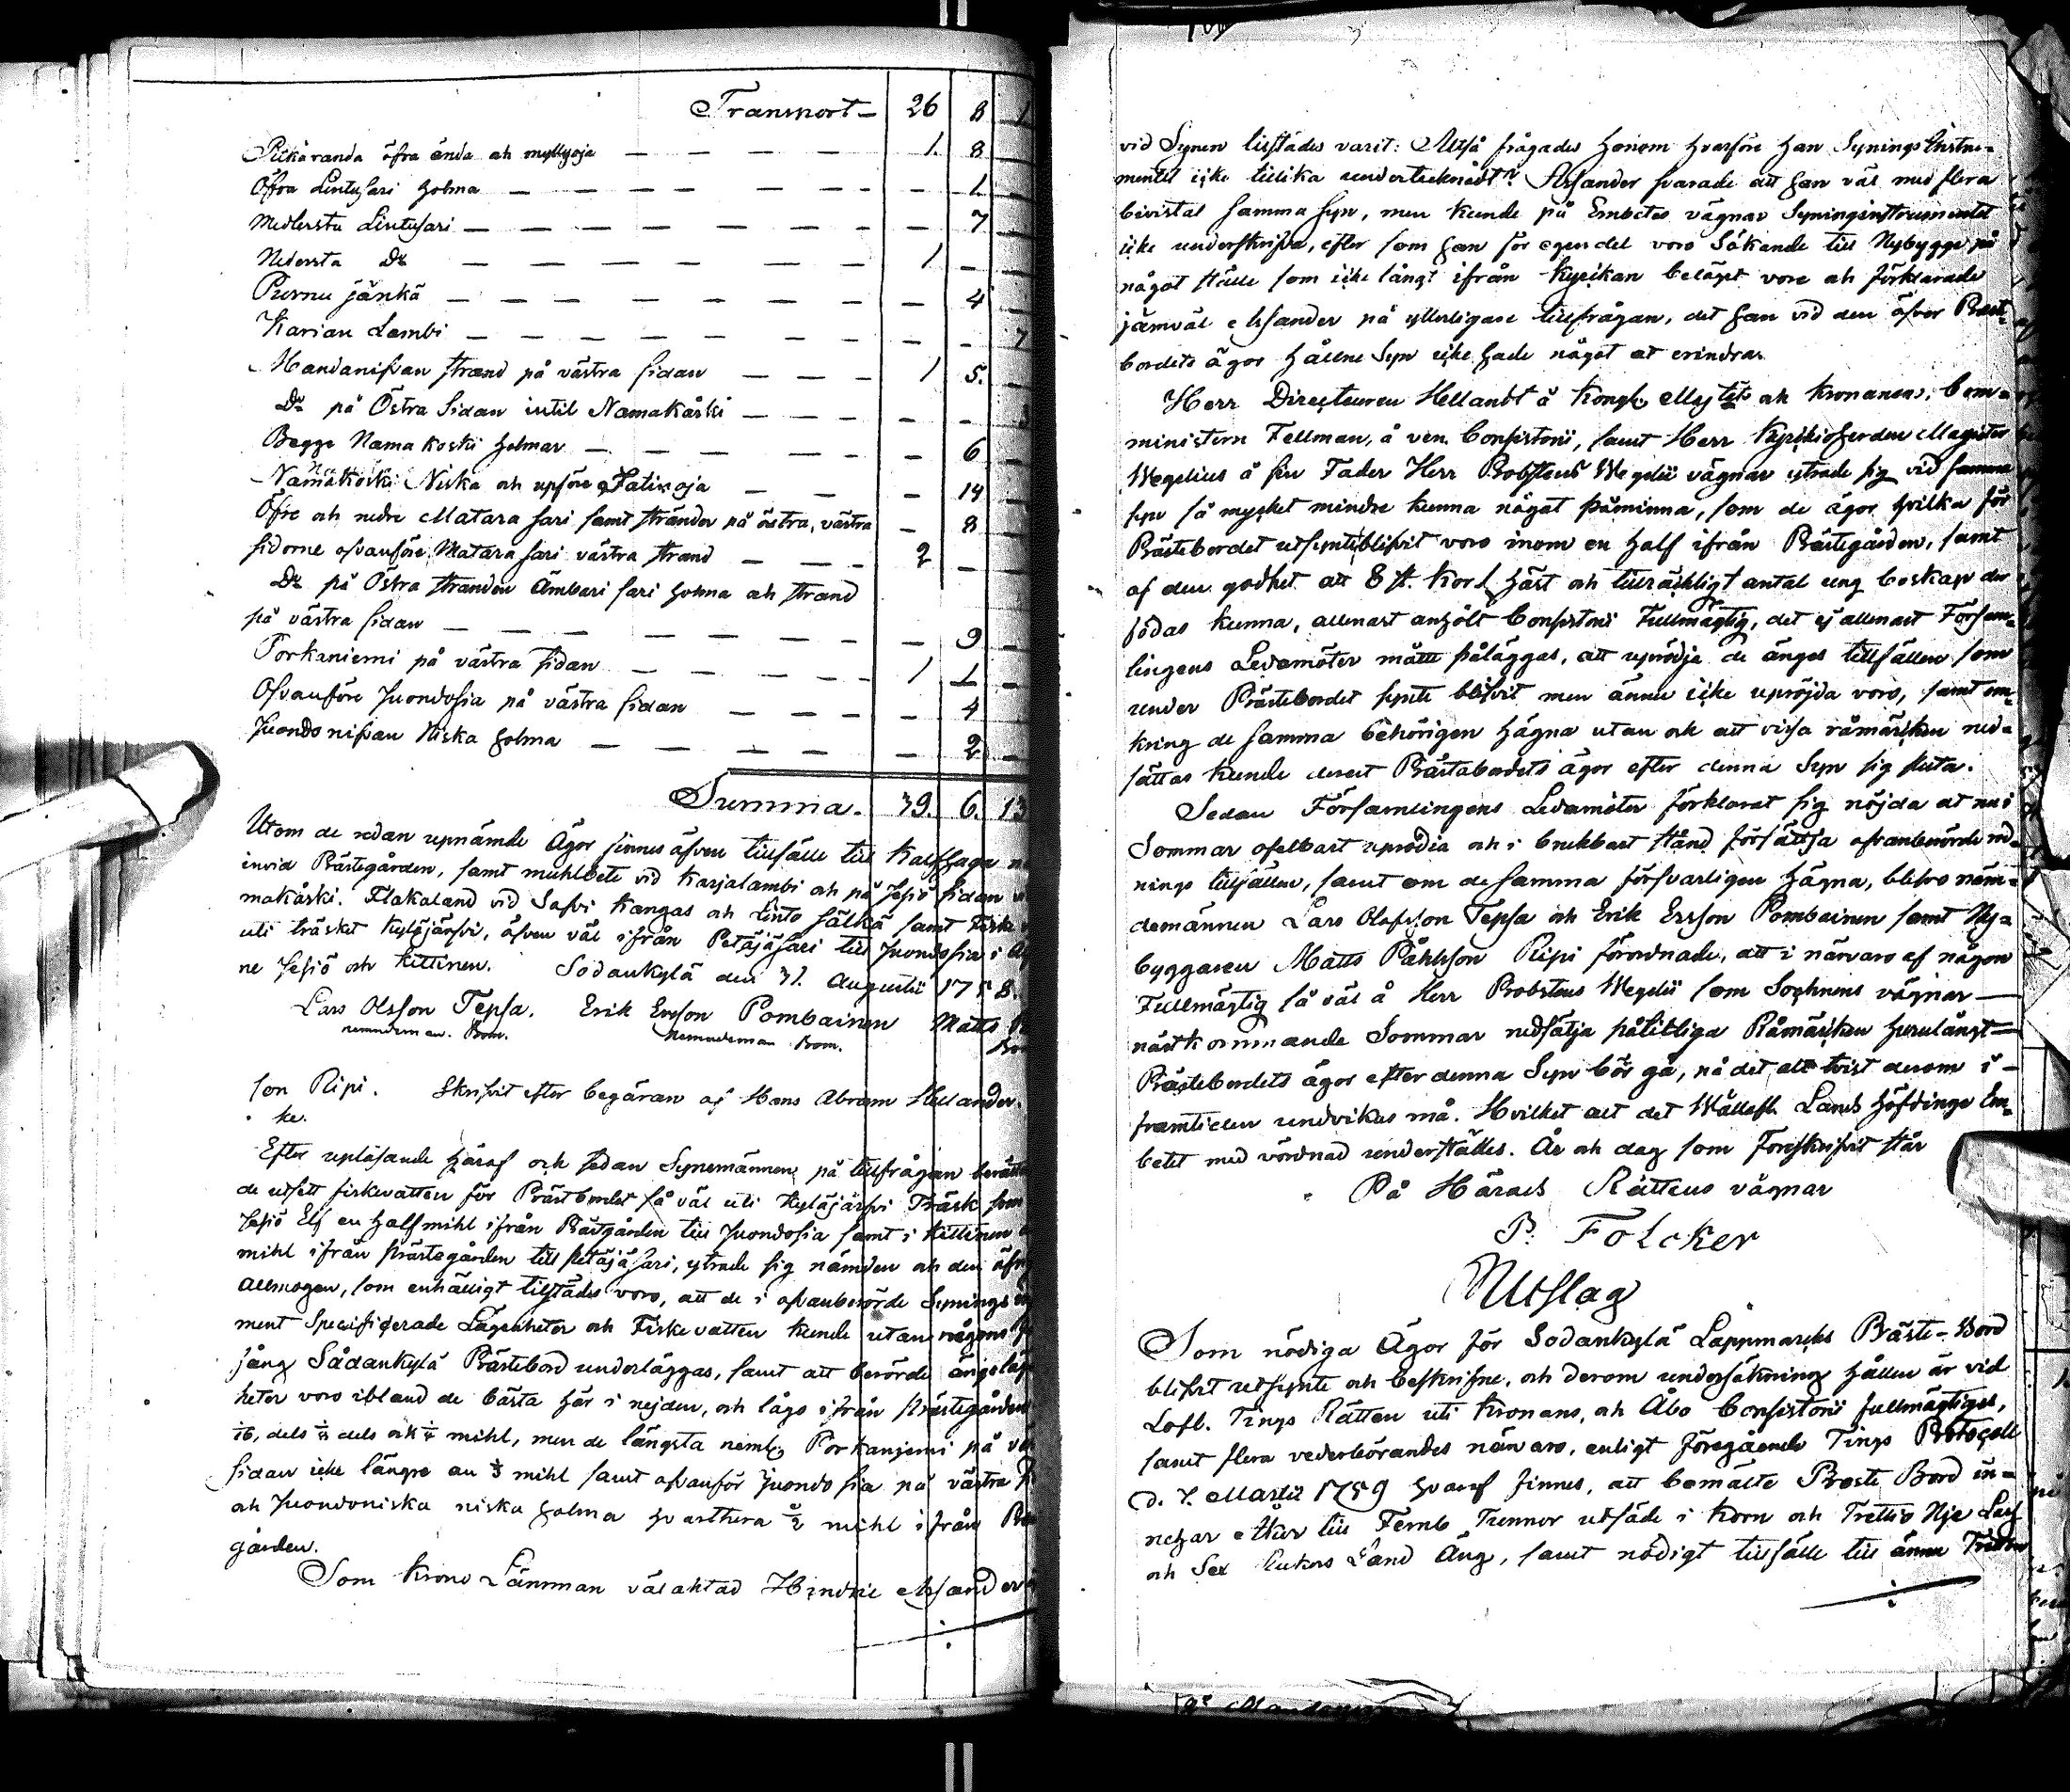 Transport — 26 8 1
Pitkäranda öfra ända ah myllyoja — 1. 8
Öfra Lintusari holma — 1
Medlersta Lintusari — 7
Nedersta Do — 1 —
Purnu jänkä — 4
Karian Lambi — 7
Mandanifvan strand på västra sidan — 1 5.
Do på Östra Sidan intil Namakåski —
Begge Nama koski holmar — 6
Namakoski Niska och upföre Hatisoja — 14
Öfre och nedre Matara sari samt stränder på östra, västra — 8
sidorne ofvanföre Matara sari västra strand — 2 —
Do på Östra stranden Ämbari sari holma ah strand
på västra sidan — 9
Porkaniemi på västra sidan — 1 1
Ofvanföre Juondosia på västra sidan — 4
Juondo nifvan Niska holma — 2
Summa. 39. 6. 13
Utom de redan upnämde Ägor finnes äfven tillfälle till kalfhaga
invid Prästegården, samt muhlbete vid Karjalambi ah på Jesiö sidan
makåski. Flakaland vid Safvi kangas och linto sälkä samt Fiske
uti träsket Kyläjärfvi, äfven väl ifrån Petäjäsari till Juondosia i
ne Jesiö och Kittinen. Sodankylä den 31. Augustii 1758.
Lars Olsson Tepsa. Erik Ersson Pombainen Matts
nemndeman. Bom. Nemndeman Bom.
son Ripi. Skrifvit efter begäran af Hans Abram Hellander.
ke.
Efter upläsande häraf och sedan Synemännene på tillfrågan berätta
de utsett fiskevatten för Prästbordet så väl uti Kyläjärfvi Träsk som
Jesiö Elf en half mihl ifrån Prästgården till Juondosia samt i Kittinen
mihl ifrån prästegården till Petäjäsari, ytrade sig nämden och den öfri
Allmogen, som enhälligt tilstädes voro, att de i ofvanberörde Synings
ment Specificerade Lägenheter och Fiskevatten kunde utan någons
fång Sådankylä Prästebord underläggas, samt att berörde ängslägen
heter voro ibland de bästa här i nejden, och lågo ifrån prästegården
1/16, dels 1/8 dels och 1/4 mihl, men de längsta neml. Porkaniemi på
sidan icke längre än 1/3 mihl samt ofvanför Juondo sia på västra
ah Juondoniska niska holma hvarthera 1/2 mihl ifrån
gården.
Som Krono Länman välaktad Hindric Alsander
vid Synen tilstädes varit: Altså frågades honom hvarföre han Synings Instru-
mentet icke tillika undertecknadt? Alsander svarade att han väl med flera
bivistat samma syn, men kunde på Embetes vägnar Syningsinstrumentet
icke underskrifva, efter som han för egen del voro Sökande till Nybygge på
något ställe som icke långt ifrån kyrkan beläget vore ah förklarade
jämväl Alsander på ytterligare tillfrågan, det han vid den öfver Präst-
bordets ägor hållne Syn icke hade något at erindra.
Herr Directeuren Hellandt å Kongl. Maj:tts och Kronanes, Com-
ministern Fellman, å ven. Consistorii, samt Herr Kyrkioherden Magister
Wegelius å sin Fader Herr Probstens Wegelii vägnar ytrade sig vid samma
syn så mycket mindre kunna något påminna, som de ägor hvilka för
Prästebordet utsynte blifvit voro inom en half ifrån Prästegården, samt
af den godhet att 8 st. kor 1 häst och tillräckligt antal ung boskap der
födas kunna, allenast anhölt Consistorii Fullmägtig, det ej allenast Försam-
lingens Ledamöter måtte påläggas, att uprödja de ängs tillfällen som
under Prästebordet synte blifvit men ännu icke uprojda voro, samt om-
kring de samma behörigen hägna utan ock att vissa råmärken ned-
sättas kunde derest Prästabordets ägor efter denna Syn sig sluta.
Sedan Församlingens Ledamöter förklarat sig nöjda at nu i
Sommar ofelbart uprödia och i brukbart stånd försättja ofvanberörde röd-
nings tillfällen, samt om de samma försvarligen hägna, blefvo näm-
demännen Lars Olofsson Tepsa och Erik Ersson Pombainen samt Ny-
byggaren Matts Påhlsson Ripi förordnade, att i närvaro af någon
Fullmägtig så väl å Herr Probstens Wegelii som Sochnens vägnar —
nästkommande Sommar nedsätja pålitliga Råmärken hurulångt —
Prästebordets ägor efter denna Syn bör gå, på det alt tvist derom i —
framtiden undvikas må. Hvilket alt det Wällofl. Lands höfdinge Em-
betet med vördnad underställes. År och dag som Förskrifvit står
På Härads Rättens vägnar
P. Folcker
Utslag
Som nödiga Ägor för Sodankylä Lappmarcks Präste-Bord
blifvit utsynte och beskrifne, och derom undersökning hållen är vid
Lofl. Tings Rätten uti Kronans, och Åbo Consistorii fullmägtiges,
samt flera vederbörandes närvaro, enligt föregående Tings Protocoll
d. 7. Martii 1759 hvaraf finnes, att bemälte Preste Bord in-
nehar åker till Femb Tunnor utsäde i korn och Trettio Nije Lass
och Sex Rukors Land Äng, samt nödigt tillfälle till ännu